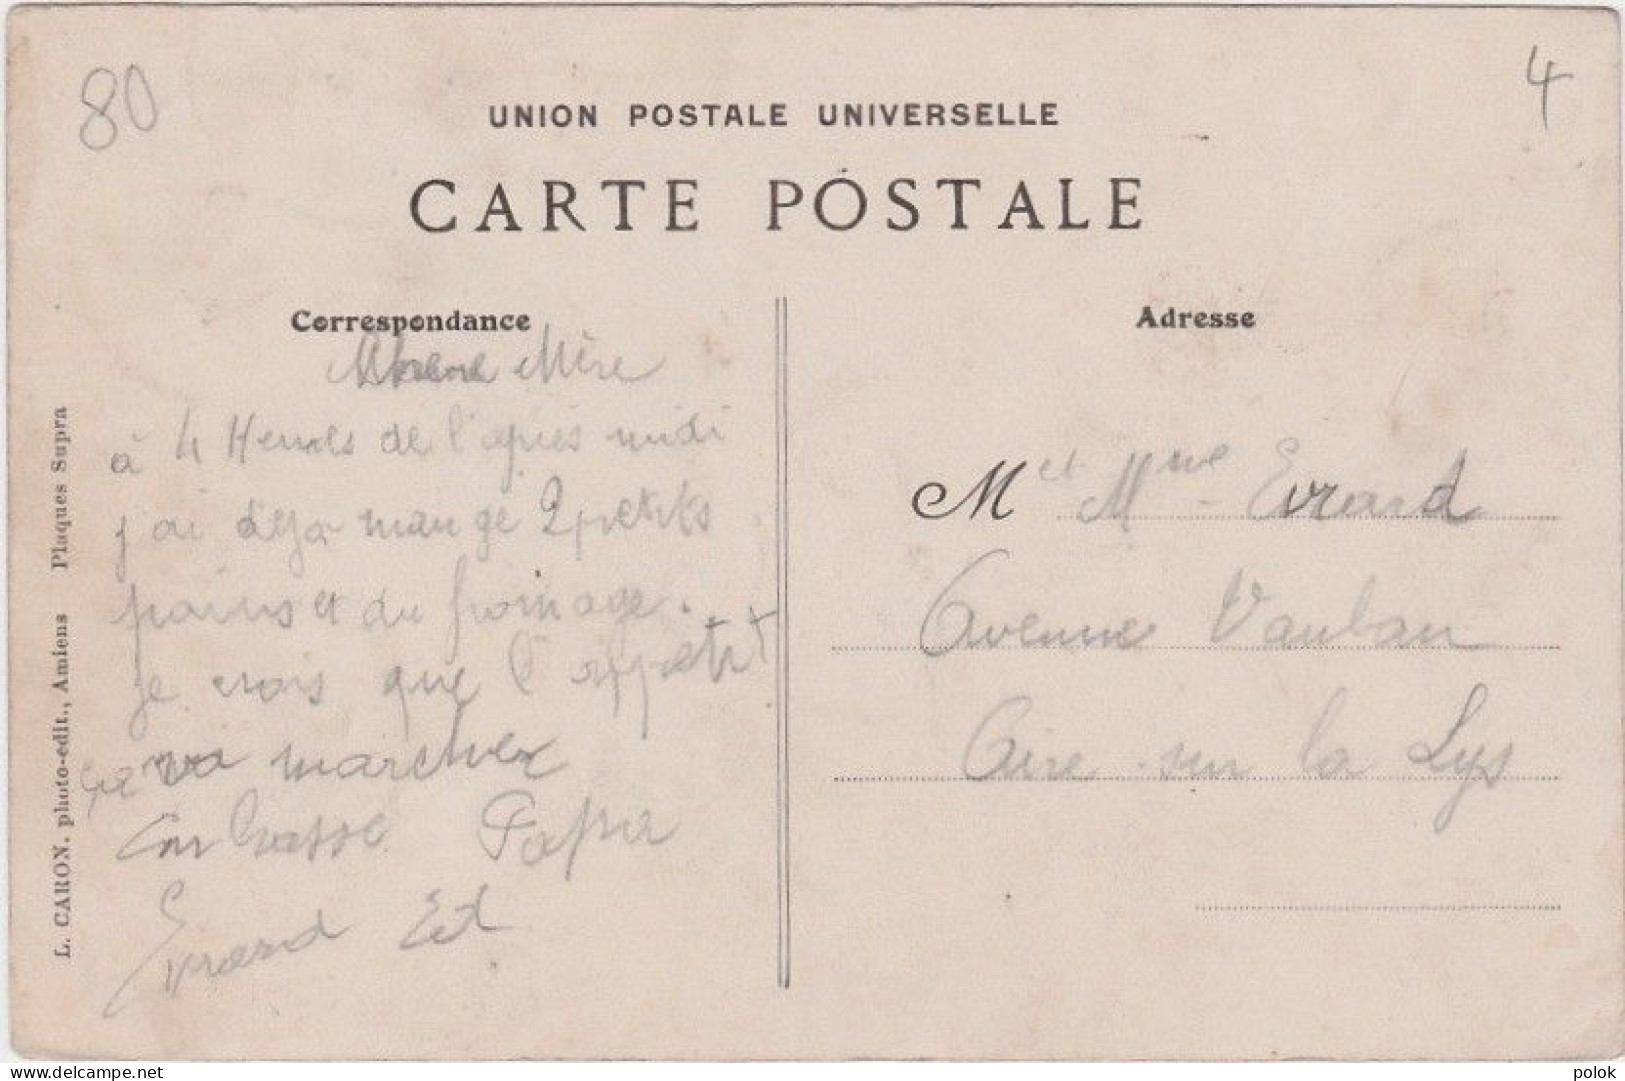 80
4
UNION POSTALE UNIVERSELLE
CARTE POSTALE
Correspondance
Mère
à 4 Heures de l'après midi
j'ai déja mangé 2 petits
pains et du fromage.
je crois que l'appetit
va marcher
Embrasse Papa
Evrard Ed
Adresse
M et Mme Evrard
Avenue Vauban
Aire sur la Lys
L. CARON. photo-edit., Amiens Plaques Supra
delcampe.net
polok